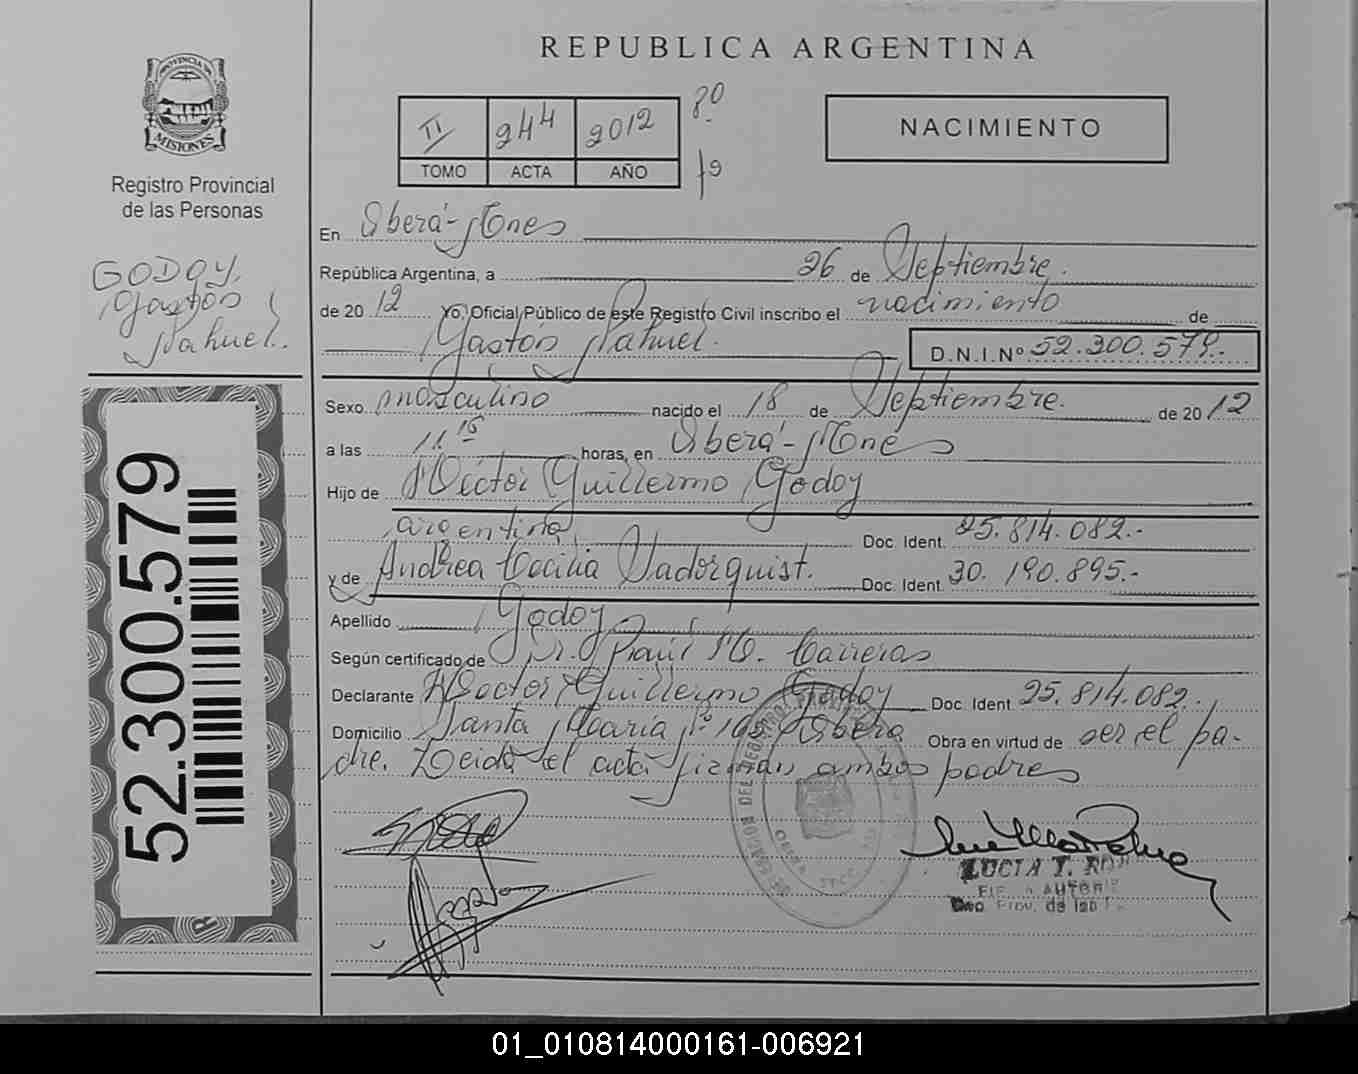 REPUBLICA ARGENTINA
PROVINCIA DE
MISIONES
Registro Provincial
de las Personas
II 244 2012 80
TOMO ACTA AÑO fs
NACIMIENTO
GODOY,
Gastón
Nahuel.
52.300.579
En Oberá - Mnes
República Argentina, a 26 de Septiembre.
de 20 12 Yo, Oficial Público de este Registro Civil inscribo el nacimiento de
Gastón Nahuel. D.N.I.Nº 52.300.579.-
Sexo masculino nacido el 18 de Septiembre. de 20 12
a las 11.15 horas, en Oberá - Mnes
Hijo de Héctor Guillermo Godoy
argentina Doc. Ident. 25.814.082.-
y de Andrea Cecilia Doc. Ident. 30.190.895.-
Apellido Godoy
Según certificado de Dr. Raúl H. Carreras
Declarante Héctor Guillermo Godoy Doc. Ident. 25.814.082.
Domicilio Santa María Nº Oberá Obra en virtud de ser el pa-
dre. Leída el acta firman ambos padres
LUCIA T.
01_010814000161-006921